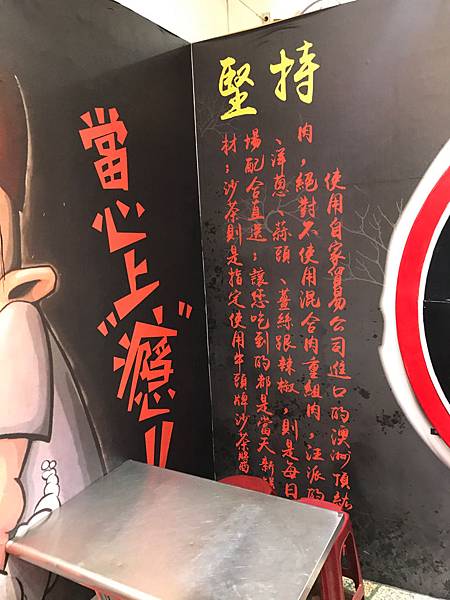 堅持
使用自家貿易公司進口的澳洲頂級
肉，絕對不使用混合肉重組肉，汪派的
、洋蔥、蒜頭、薑絲跟辣椒，則是每日
場配合直送；讓您吃到的都是當天新鮮
材；沙茶則是指定使用牛頭牌沙茶醬
當心上"癮"!!